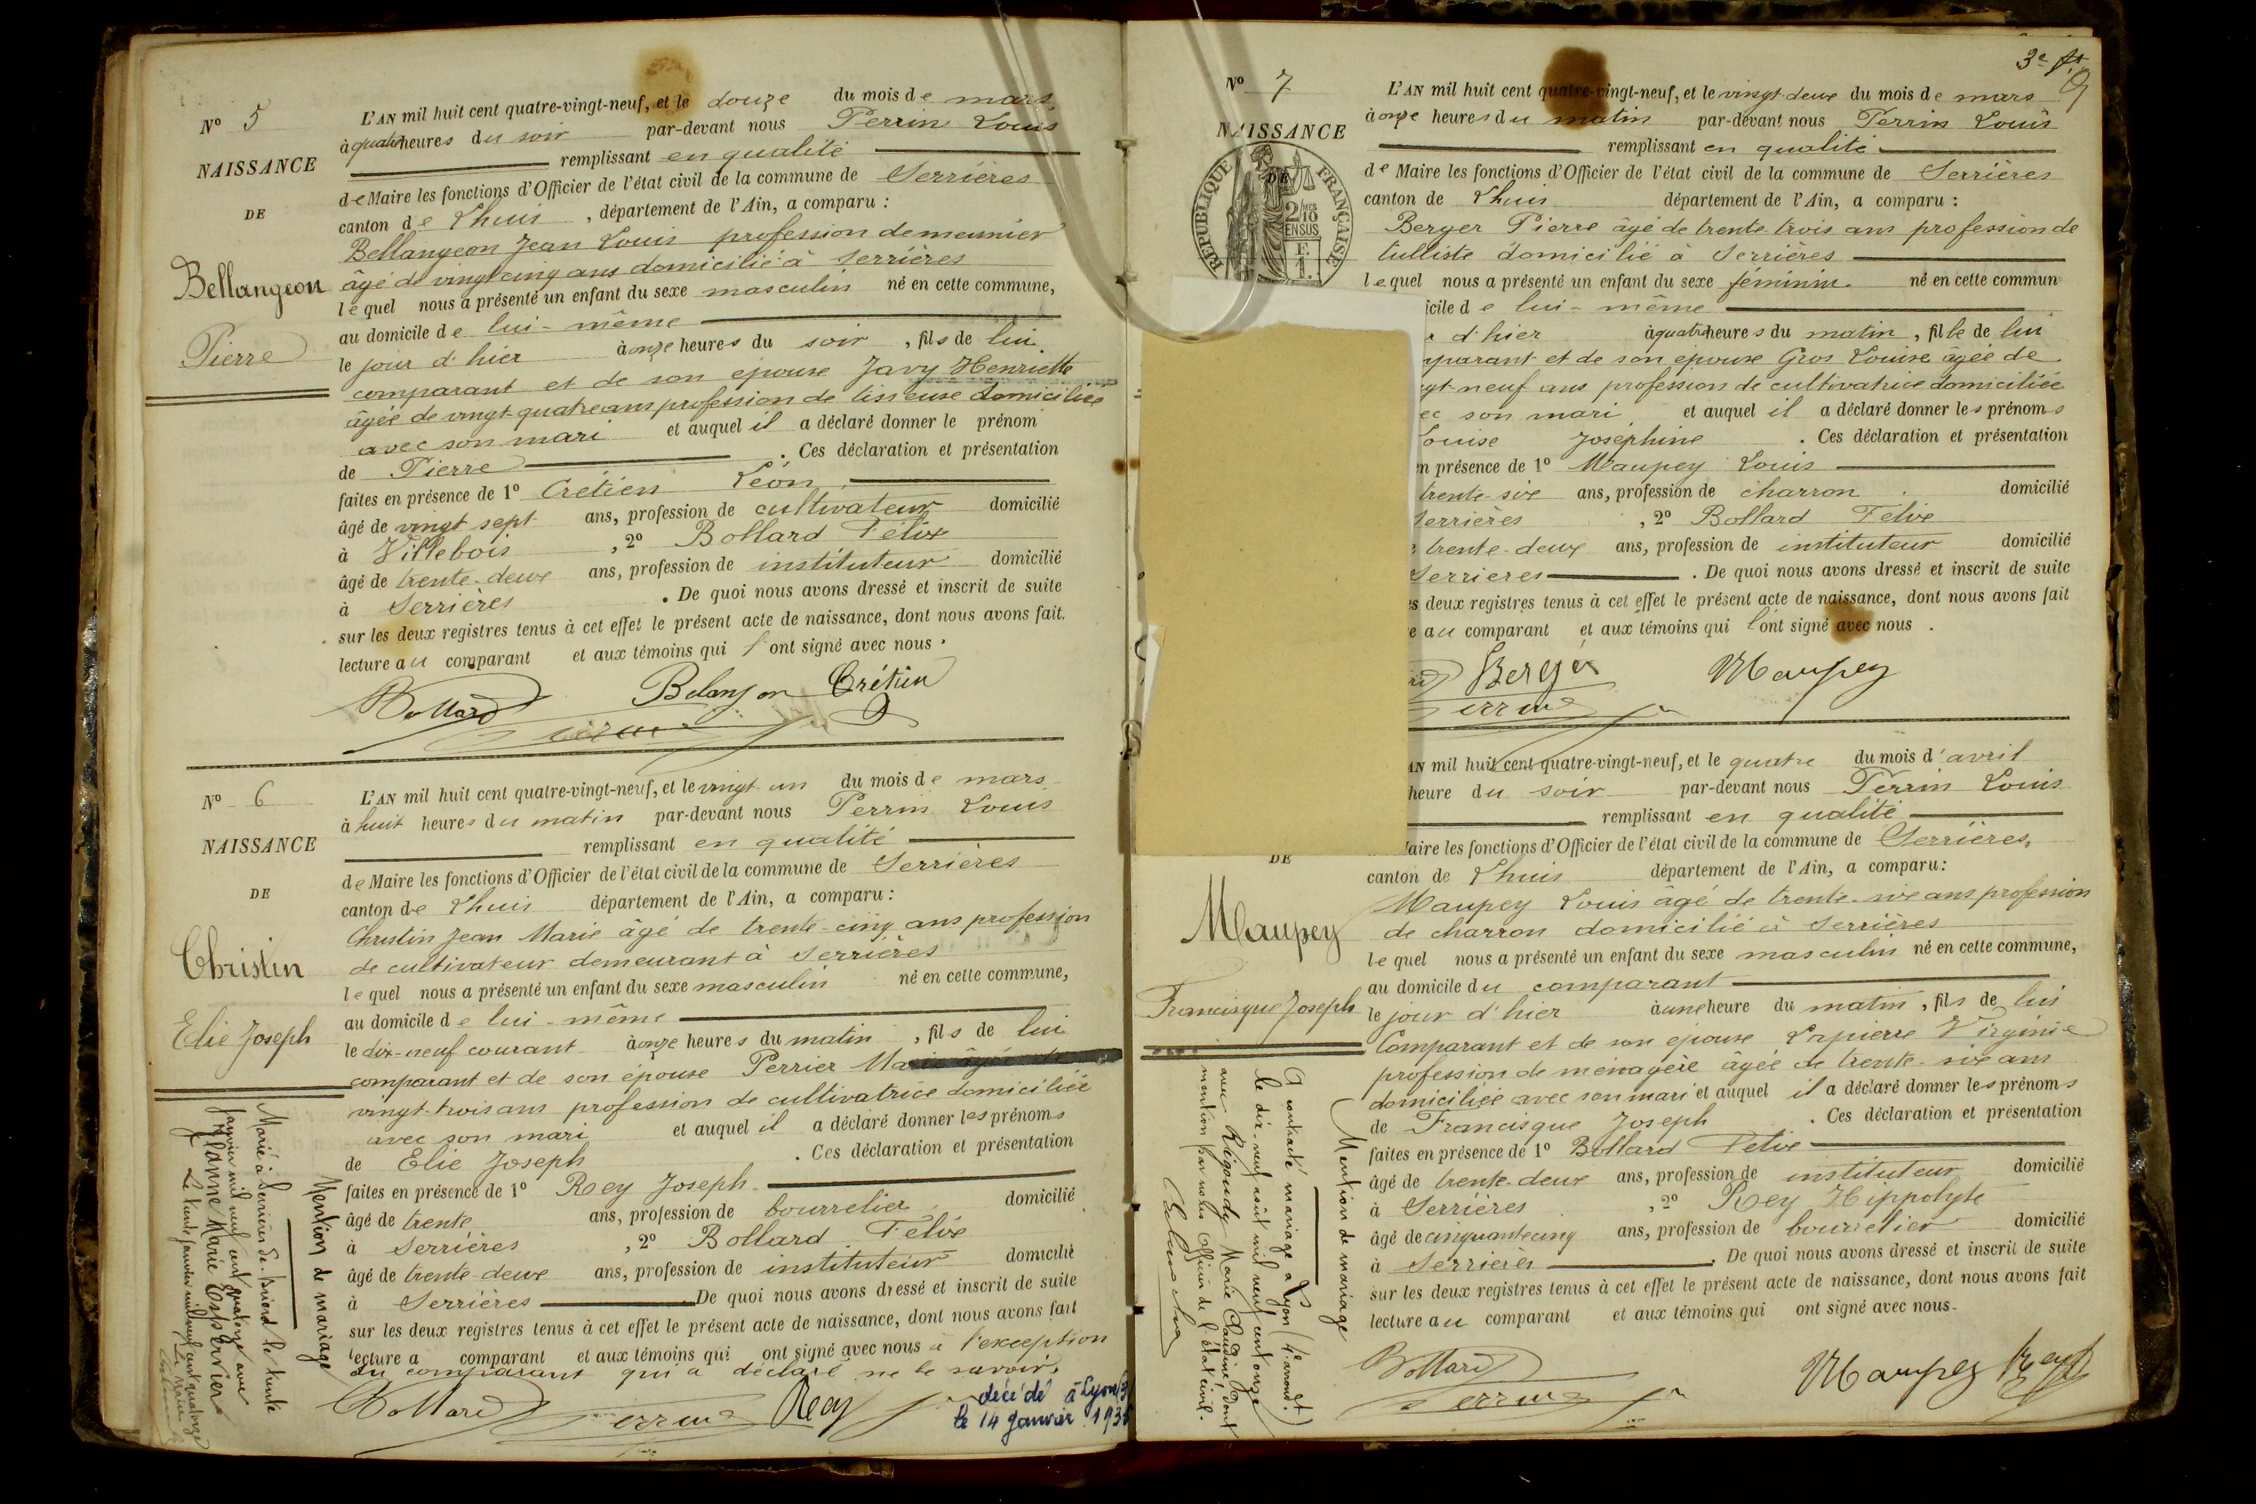 N° 5
NAISSANCE
DE
Bellangeon
Pierre
L'AN mil huit cent quatre-vingt-neuf, et le douze du mois de mars,
à quatre heures du soir par-devant nous Perrin Louis
remplissant en qualité
de Maire les fonctions d'Officier de l'état civil de la commune de Serrières
canton de Lhuis, département de l'Ain, a comparu :
Bellangeon Jean Louis profession de meunier
âgé de vingt cinq ans domicilié à Serrières
lequel nous a présenté un enfant du sexe masculin né en cette commune,
au domicile de lui-même
le jour d'hier à onze heures du soir, fils de lui
comparant et de son épouse Javy Henriette
âgée de vingt-quatre ans profession de tisseuse domiciliée
avec son mari et auquel il a déclaré donner le prénom
de Pierre . Ces déclaration et présentation
faites en présence de 1° Crétien Léon
âgé de vingt sept ans, profession de cultivateur domicilié
à Villebois , 2° Bollard Félix
âgé de trente-deux ans, profession de instituteur domicilié
à Serrières . De quoi nous avons dressé et inscrit de suite
sur les deux registres tenus à cet effet le présent acte de naissance, dont nous avons fait
lecture au comparant et aux témoins qui l'ont signé avec nous.
Bollard Belanjon Crétien
Perrin
N° 6
NAISSANCE
DE
Christin
Elie Joseph
L'AN mil huit cent quatre-vingt-neuf, et le vingt-un du mois de mars
à huit heures du matin par-devant nous Perrin Louis
remplissant en qualité
de Maire les fonctions d'Officier de l'état civil de la commune de Serrières
canton de Lhuis département de l'Ain, a comparu :
Christin Jean Marie âgé de trente-cinq ans profession
de cultivateur demeurant à Serrières
lequel nous a présenté un enfant du sexe masculin né en cette commune,
au domicile de lui-même
le dix-neuf courant à onze heures du matin, fils de lui
comparant et de son épouse Perrier Marie âgée de
vingt-trois ans profession de cultivatrice domiciliée
avec son mari et auquel il a déclaré donner les prénoms
de Elie Joseph . Ces déclaration et présentation
faites en présence de 1° Rey Joseph
âgé de trente ans, profession de bourrelier domicilié
à Serrières , 2° Bollard Félix
âgé de trente-deux ans, profession de instituteur domicilié
à Serrières De quoi nous avons dressé et inscrit de suite
sur les deux registres tenus à cet effet le présent acte de naissance, dont nous avons fait
lecture a comparant et aux témoins qui ont signé avec nous à l'exception
du comparant qui a déclaré ne le savoir.
Bollard Perrin Rey
décédé à Lyon
le 14 Janvier 193
Mention de mariage
Marié à Serrières-de-Briord le trente
janvier mil neuf cent quatorze avec
Jeanne Marie Esparvier
Le trente janvier mil neuf cent quatorze
Le Maire
3e
9
N° 7
NAISSANCE
DE
RÉPUBLIQUE FRANÇAISE
L'AN mil huit cent quatre-vingt-neuf, et le vingt-deux du mois de mars
à onze heures du matin par-devant nous Perrin Louis
remplissant en qualité
de Maire les fonctions d'Officier de l'état civil de la commune de Serrières
canton de Lhuis département de l'Ain, a comparu :
Berger Pierre âgé de trente trois ans profession de
tulliste domicilié à Serrières
lequel nous a présenté un enfant du sexe féminin né en cette commun
icile de lui-même
r d'hier à quatre heures du matin, fille de lui
mparant et de son épouse Gros Louise âgée de
gt-neuf ans profession de cultivatrice domiciliée
ec son mari et auquel il a déclaré donner les prénoms
Louise Joséphine . Ces déclaration et présentation
en présence de 1° Maupey Louis
trente-six ans, profession de charron domicilié
Serrières , 2° Bollard Félix
e trente-deux ans, profession de instituteur domicilié
Serrières . De quoi nous avons dressé et inscrit de suite
es deux registres tenus à cet effet le présent acte de naissance, dont nous avons fait
e au comparant et aux témoins qui l'ont signé avec nous.
Berger Maupey
Perrin
DE
Maupey
Francisque Joseph
AN mil huit cent quatre-vingt-neuf, et le quatre du mois d'avril
heure du soir par-devant nous Perrin Louis
remplissant en qualité
Maire les fonctions d'Officier de l'état civil de la commune de Serrières,
canton de Lhuis département de l'Ain, a comparu :
Maupey Louis âgé de trente-six ans profession
de charron domicilié à Serrières
lequel nous a présenté un enfant du sexe masculin né en cette commune,
au domicile du comparant
le jour d'hier à une heure du matin, fils de lui
Comparant et de son épouse Lapierre Virginie
profession de ménagère âgée de trente-six ans
domiciliée avec son mari et auquel il a déclaré donner les prénoms
de Francisque Joseph . Ces déclaration et présentation
faites en présence de 1° Bollard Félix
âgé de trente-deux ans, profession de instituteur domicilié
à Serrières , 2° Rey Hippolyte
âgé de cinquante cinq ans, profession de bourrelier domicilié
à Serrières . De quoi nous avons dressé et inscrit de suite
sur les deux registres tenus à cet effet le présent acte de naissance, dont nous avons fait
lecture au comparant et aux témoins qui ont signé avec nous.
Bollard Maupey Rey
Perrin
Mention de mariage
A contracté mariage à Lyon (4e arrondt)
le dix-neuf août mil neuf cent onze
avec Rigoudy Marie Claudine, dont
mention par nous Officier de l'état civil.